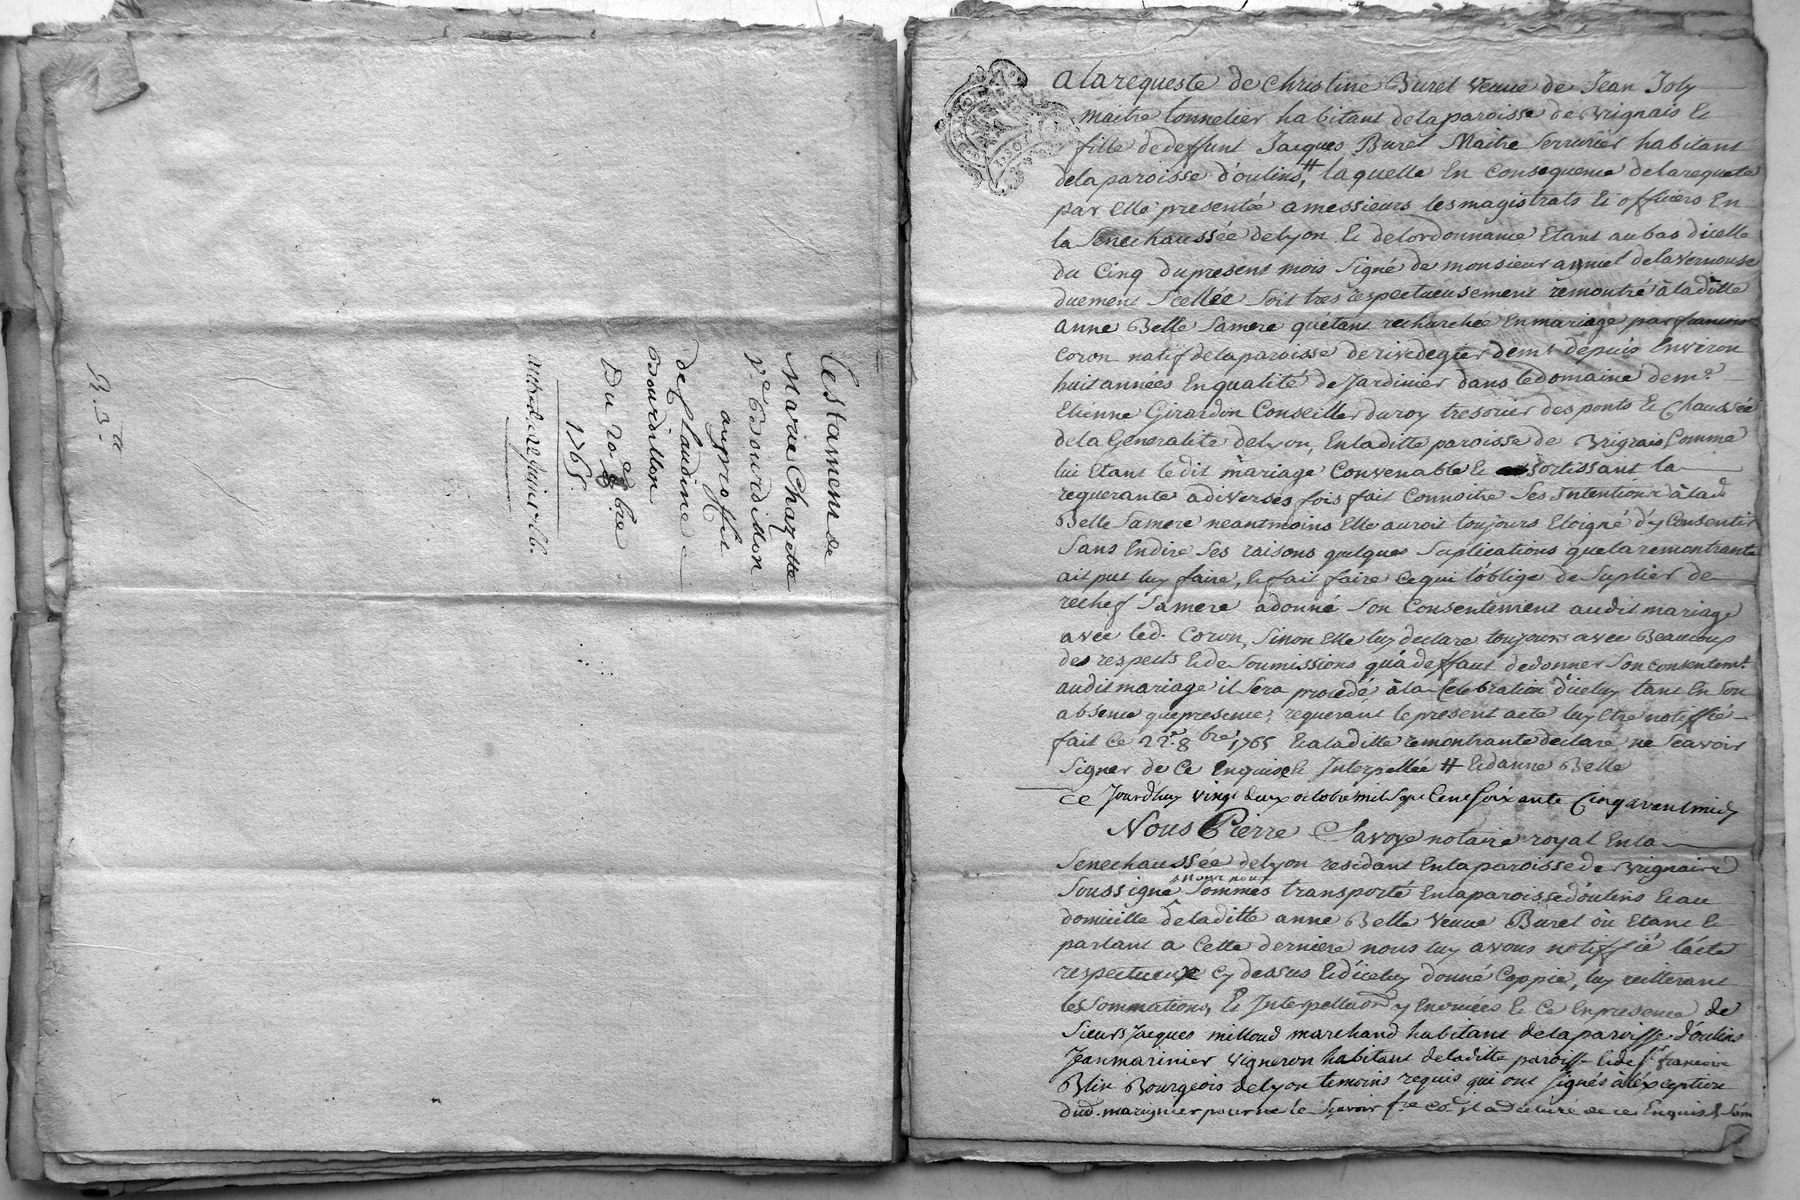 Testament de
Marie Chazette
Ve Bourdillon
au proffit
de Claudine
Bourdillon
Du 20 8bre
1765.
R. 3 a
A la requeste de Christine Buret Veuve de Jean Joly
maitre tonnelier habitant de la paroisse de Vrignais &
fille de deffunt Jacques Buret Maitre Serrurier habitant
de la paroisse d'oulins, # laquelle En Consequence de la requete
par Elle presentée a messieurs les magistrats & officiers En
la Senechaussée de Lyon & de lordonnance Etant au bas dicelle
du Cinq du present mois Signé de monsieur de la vernouse
duement Scellée soit tres respectueusement remontré à la ditte
anne Belle Sa mere qu'étant recherchée En mariage par francois
Coron natif de la paroisse de rivedegier demt depuis Environ
huit années En qualité de Jardinier dans le domaine de mr
Etienne Girardon Conseiller du roy tresorier des ponts & Chaussée
de la Generalité de Lyon, En la ditte paroisse de Vrignais Comme
lui Etant le dit mariage Convenable & sortissant la
requerante a diverses fois fait Connoitre Ses Intentions à lad
Belle Sa mere neantmoins Elle auroit toujours Eloigné d'y Consentir
Sans En dire Ses raisons quelques Suplications que la remontrante
ait put luy faire, & fait faire Ce qui l'oblige de Suplier de
rechef Sa mere a donné Son Consentement audit mariage
avec led. Coron, Sinon Elle luy declare toujours avec Beaucoup
des respects & de Soumissions qu'à deffaut de donner Son consentemt
audit mariage il Sera procedé à la Celebration d'iceluy tant En Son
absence que presence; requerant le present acte luy Etre notiffié
fait Ce 22e 8bre 1765 & a la ditte remontrante declaré ne Scavoir
Signer de Ce Enquise & Interpellée # & d'anne Belle
Ce Jourd'huy vingt deux octobre mil Sept Cent Soixante Cinq avant midy
Nous Pierre Savoye notaire royal En la
Senechaussée de Lyon residant En la paroisse de Vrignais
Soussigné Sommes transporté En la paroisse d'oulins & au
domicille de la ditte anne Belle Veuve Buret où Etant &
parlant a Cette derniere nous luy avons notiffié l'acte
respectueux Cy dessus & d'iceluy donné Coppie, luy reitterant
les Sommations, & Interpellaons y Enoncées & Ce En presence de
Sieurs Jacques milloud marchand habitant de la paroisse d'oulins
Jean marinier vigneron habitant de la ditte paroisse & de Sr francois
Blin Bourgeois de Lyon temoins requis qui ont Signés à l'exception
dud. marignier pour ne le Scavoir il a déclaré de ce Enquis & Som